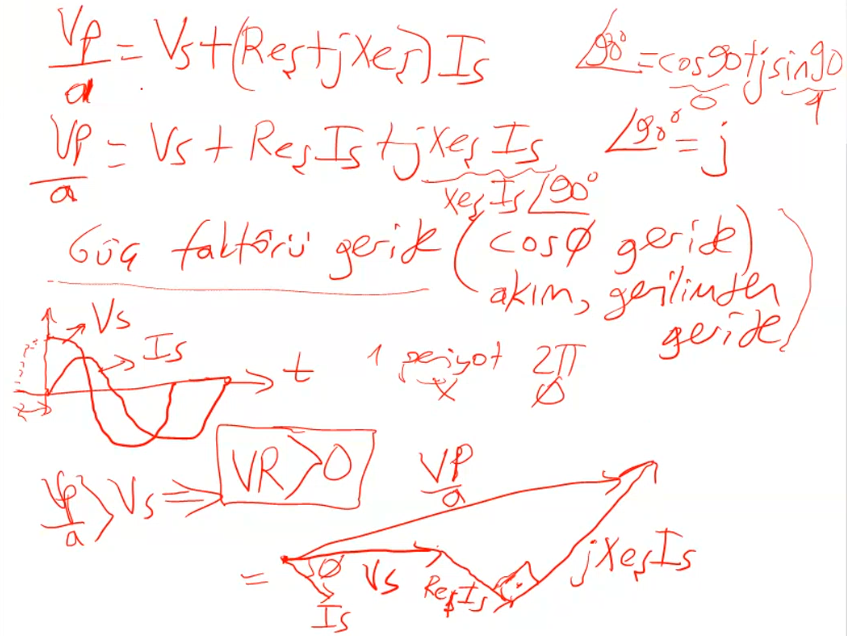 Vp/a = Vs + (Reş + jXeş) Is
∠90° = cos90 + jsin90
0 1
Vp/a = Vs + Reş Is + jXeş Is
∠90° = j
Xeş Is ∠90°
Güç faktörü geride (cosφ geride)
akım, gerilimden
geride
Vs
Is
t
1 periyot 2π
x φ
Vp/a > Vs ⇒ VR > 0
VP/a
= φ Vs Reş Is jXeş Is
Is